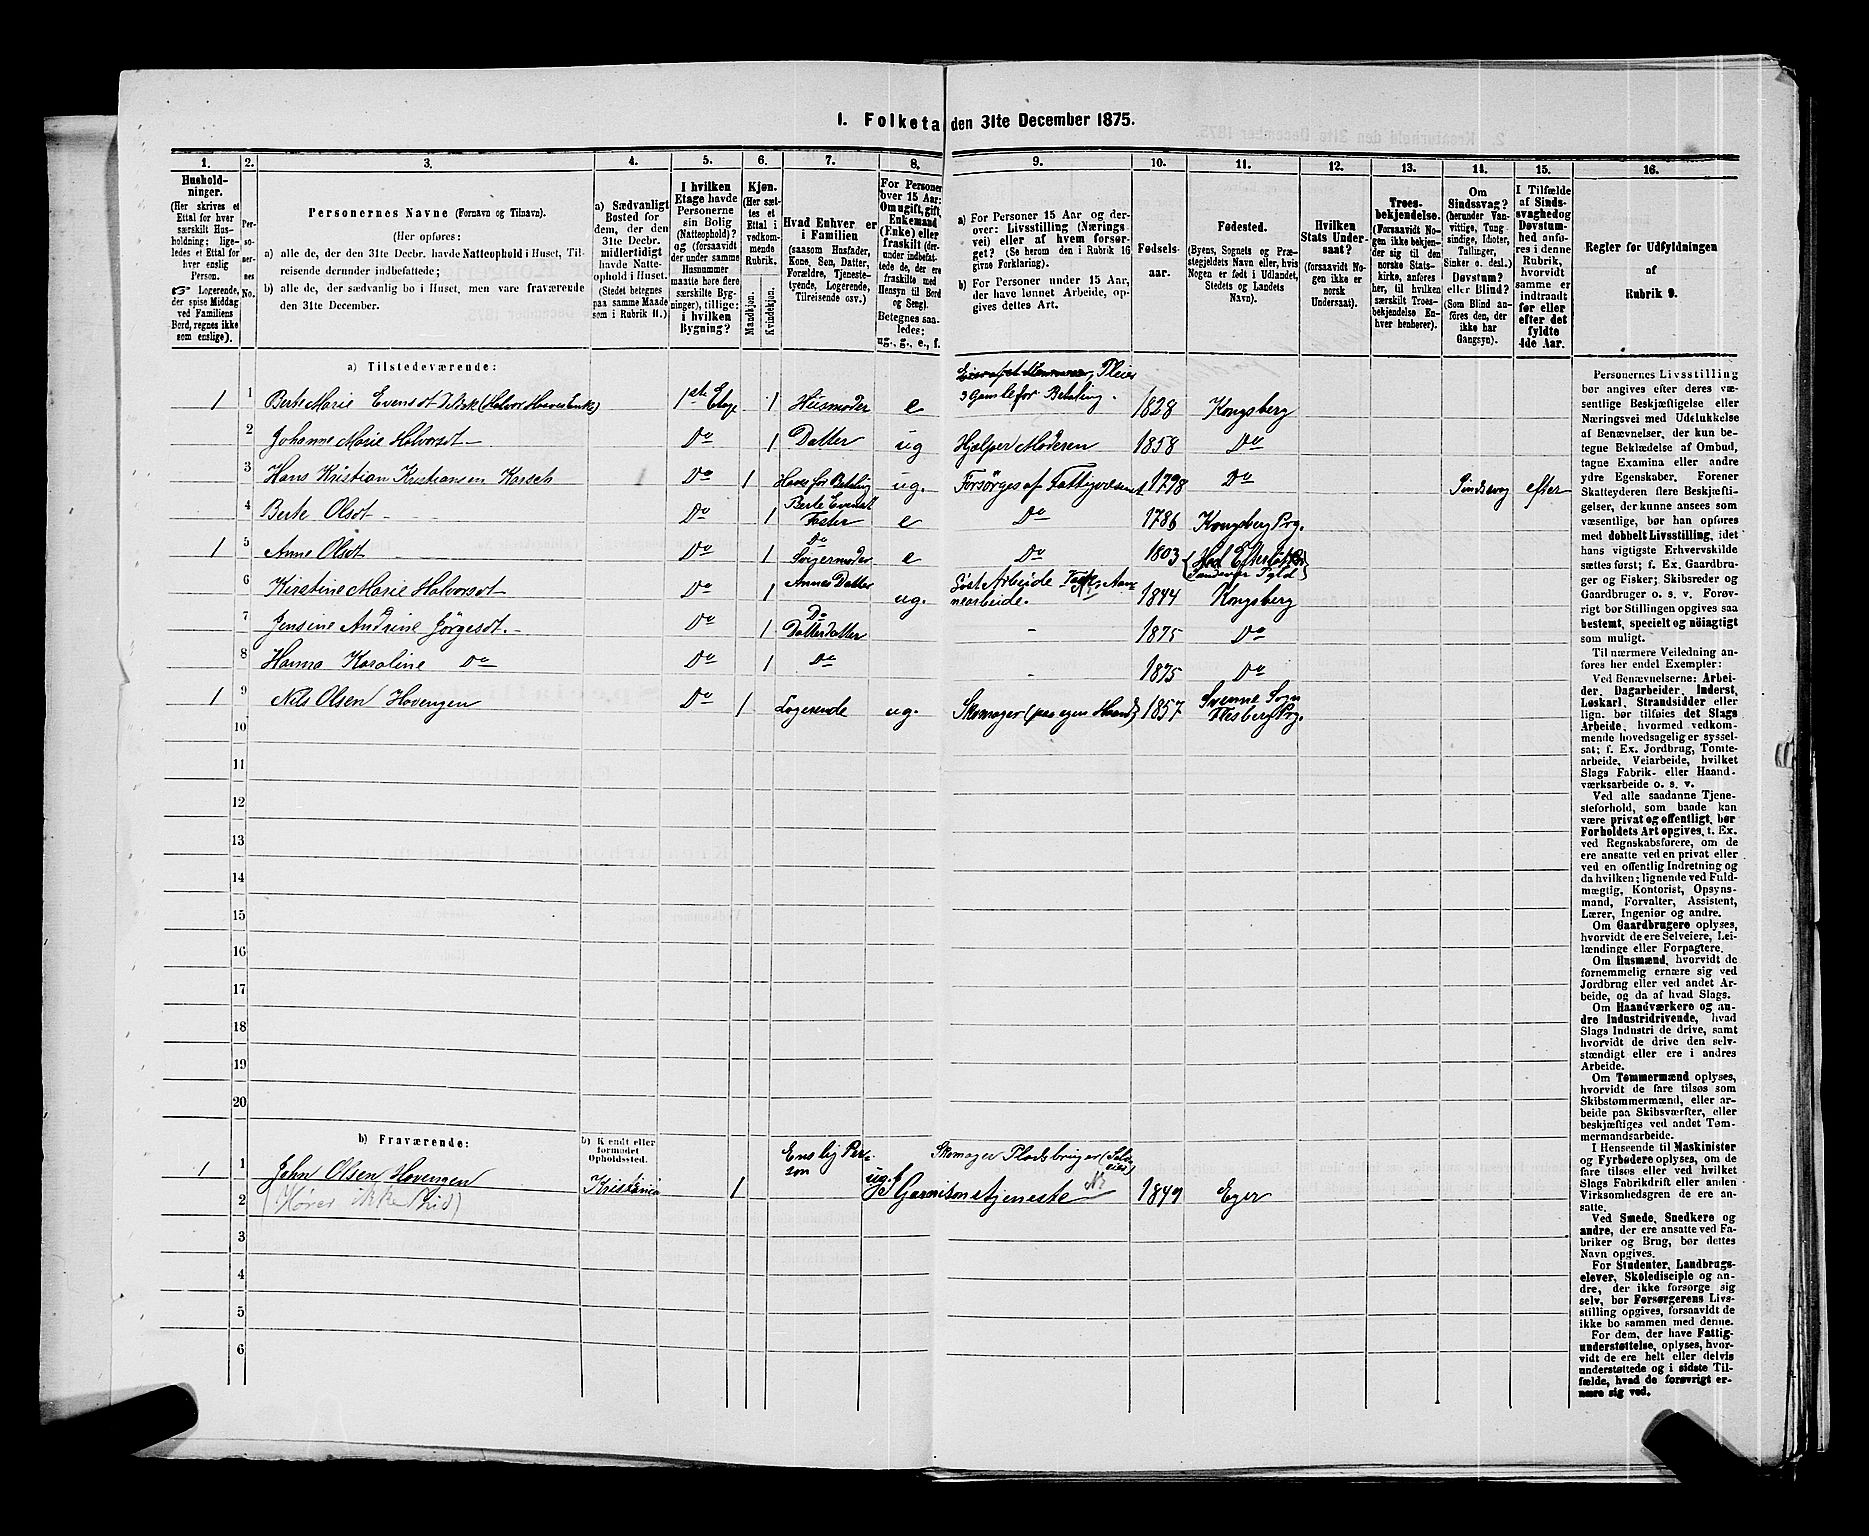 1. Folketa den 31te December 1875.
1. 2. 3. 4. 5. 6. 7. 8. 9. 10. 11. 12. 13. 14. 15. 16.
Hushold-
ninger.
(Her skrives et
Ettal for hver
særskilt Hus-
holdning; lige-
ledes et Ettal for
hver enslig
Person.
☞ Logerende,
der spise Middag
ved Familiens
Bord, regnes ikke
som enslige).
Per-
so-
ner-
nes
No.
Personernes Navne (Fornavn og Tilnavn).
(Her opføres:
a) alle de, der den 31te Decbr. havde Natteophold i Huset, Til-
reisende derunder indbefattede;
b) alle de, der sædvanlig bo i Huset, men vare fraværende
den 31te December.
a) Sædvanligt
Bosted for
dem, der den
31te Decbr.
midlertidigt
havde Natte-
ophold i Huset.
(Stedet betegnes
paa samme Maade
som i Rubrik 11.)
I hvilken
Etage havde
Personerne
sin Bolig
(Natteophold)?
og (forsaavidt
der under samme
Husnummer
maatte høre flere
særskilte Byg-
ninger), tillige:
i hvilken
Bygning?
Kjøn.
(Her sæt-
tes et
Ettal i
vedkom-
mende
Rubrik.
Mandkjøn.
Kvindekjøn.
Hvad Enhver er
i Familien
(saasom Husfader,
Kone, Søn, Datter,
Forældre, Tjeneste-
tyende, Logerende,
Tilreisende osv.)
For Personer
over 15 Aar:
Om ugift, gift,
Enkemand
(Enke) eller
fraskilt (der-
under indbefat-
tede de, der ere
fraskilte med
Hensyn til Bord
og Seng).
Betegnes saa-
ledes:
ug., g., e., f.
a) For Personer 15 Aar og der-
over: Livsstilling (Nærings-
vei) eller af hvem forsør-
get? (Se herom den i Rubrik 16
givne Forklaring).
b) For Personer under 15 Aar,
der have lønnet Arbeide, op-
gives dettes Art.
Fødsels-
aar.
Fødested.
(Byens, Sognets og Præ-
stegjeldets Navn eller, hvis
Nogen er født i Udlandet,
Stedets og Landets
Navn).
Hvilken
Stats Under-
saat?
(forsaavidt No-
gen ikke er
norsk
Undersaat).
Troes-
bekjendelse.
(Forsaavidt No-
gen ikke bekjen-
der sig til den
norske Stats-
kirke, anføres
her, til hvilken
særskilt Troes-
bekjendelse En-
hver henhører).
Om
Sindssvag?
(herunder Van-
vittige, Tung-
sindige, Idioter,
Tullinger,
Sinker o. desl.)
Døvstum?
eller Blind?
(Som Blind an-
føres den, der
ikke har
Gangsyn).
I Tilfælde
af Sinds-
svaghed og
Døvstum-
hed anfø-
res i denne
Rubrik,
hvorvidt
samme er
indtraadt
før eller
efter det
fyldte
4de Aar.
Regler for Udfyldningen
af
Rubrik 9.
a) Tilstedeværende:
Eier af et Pleier
1 1 Berte Marie Evensdt (Halvor Enke) 1ste Etage 1 Husmoder e 3 Gamle for Betaling. 1828 Kongsberg
2 Johanne Marie Halvorsdt Do 1 Datter ug Hjælper Moderen 1858 Do
3 Hans Kristian Kristiansen Do 1 Haves for Betaling ug. Forsørges af Fattigvæsenet 1798 Do Sindssvag efter
4 Berte Olsdt Do 1 Berte Evensdt Faster e Do 1786 Kongsberg Prg.
1 5 Anne Olsdt Do 1 Do Svigermoder e Do 1803 Sandsvær
6 Kirstine Marie Halvorsdt Do 1 Annes Datter ug. Løst Arbeide nearbeide. 1844 Kongsberg
7 Jensine Andrine Jørgesdt. Do 1 Do Datterdatter - 1875 Do
8 Hanna Karoline Do Do 1 Do - 1875 Do
1 9 Nils Olsen Hovengen Do 1 Logerende ug. Skomager (paa egen Haand) 1857 Svenne Sogn Flesberg Prg.
10
11
12
13
14
15
16
17
18
19
20
b) Fraværende:
b) Kendt eller
formodet
Opholdssted.
1 1 John Olsen Hovengen Kristiania 1 Enslig Per-
son ug. Skomager Pladsbruger (Selv-
eier) I Garnisonstjeneste 1849 Eger
2 (Hører ikke hid)
3
4
5
6
Personernes Livsstilling
bør angives efter deres væ-
sentlige Beskjæftigelse eller
Næringsvei med Udelukkelse
af Benævnelser, der kun be-
tegne Beklædelse af Ombud,
tagne Examina eller andre
ydre Egenskaber. Forener
Skatteyderen flere Beskjæfti-
gelser, der kunne ansees som
væsentlige, bør han opføres
med dobbelt Livsstilling, idet
hans vigtigste Erhvervskilde
sættes først; f. Ex. Gaardbru-
ger og Fisker; Skibsreder og
Gaardbruger o. s. v. Forøv-
rigt bør Stillingen opgives saa
bestemt, specielt og nøiagtigt
som muligt.
Til nærmere Veiledning an-
føres her endel Exempler:
Ved Benævnelserne: Arbei-
der, Dagarbeider, Inderst,
Løskarl, Strandsidder eller
lign. bør tilføies det Slags
Arbeide, hvormed vedkom-
mende hovedsagelig er syssel-
sat; f. Ex. Jordbrug, Tomte-
arbeide, Veiarbeide, hvilket
Slags Fabrik- eller Haand-
værksarbeide o. s. v.
Ved alle saadanne Tjene-
steforhold, som baade kan
være privat og offentligt, bør
Forholdets Art opgives, t. Ex.
ved Regnskabsførere, om de
ere ansatte ved en privat eller
ved en offentlig Indretning og
da hvilken; lignende ved Fuld-
mægtig, Kontorist, Opsyns-
mand, Forvalter, Assistent,
Lærer, Ingeniør og andre.
Om Gaardbrugere oplyses,
hvorvidt de ere Selveiere, Lei-
lændinge eller Forpagtere.
Om Husmænd, hvorvidt de
fornemmelig ernære sig ved
Jordbrug eller ved andet Ar-
beide, og da af hvad Slags.
Om Haandværkere og an-
dre Industridrivende, hvad
Slags Industri de drive, samt
hvorvidt de drive den selv-
stændigt eller ere i andres
Arbeide.
Om Tømmermænd oplyses,
hvorvidt de fare tilsøs som
Skibstømmermænd, eller ar-
beide paa Skibsværfter, eller
beskjæftiges ved andet Tøm-
mermandsarbeide.
I Henseende til Maskinister
og Fyrbødere oplyses, om de
fare tilsøs eller ved hvilket
Slags Fabrikdrift eller anden
Virksomhedsgren de ere an-
satte.
Ved Smede, Snedkere og
andre, der ere ansatte ved Fa-
briker og Brug, bør dettes
Navn opgives.
For Studenter, Landbrugs-
elever, Skoledisciple og an-
dre, der ikke forsørge sig
selv, bør Forsørgerens Livs-
stilling opgives, forsaavidt de
ikke bo sammen med denne.
For dem, der have Fattig-
understøttelse, oplyses, hvor-
vidt de ere helt eller delvis
understøttede og i sidste Til-
fælde, hvad de forøvrigt er-
nære sig ved.